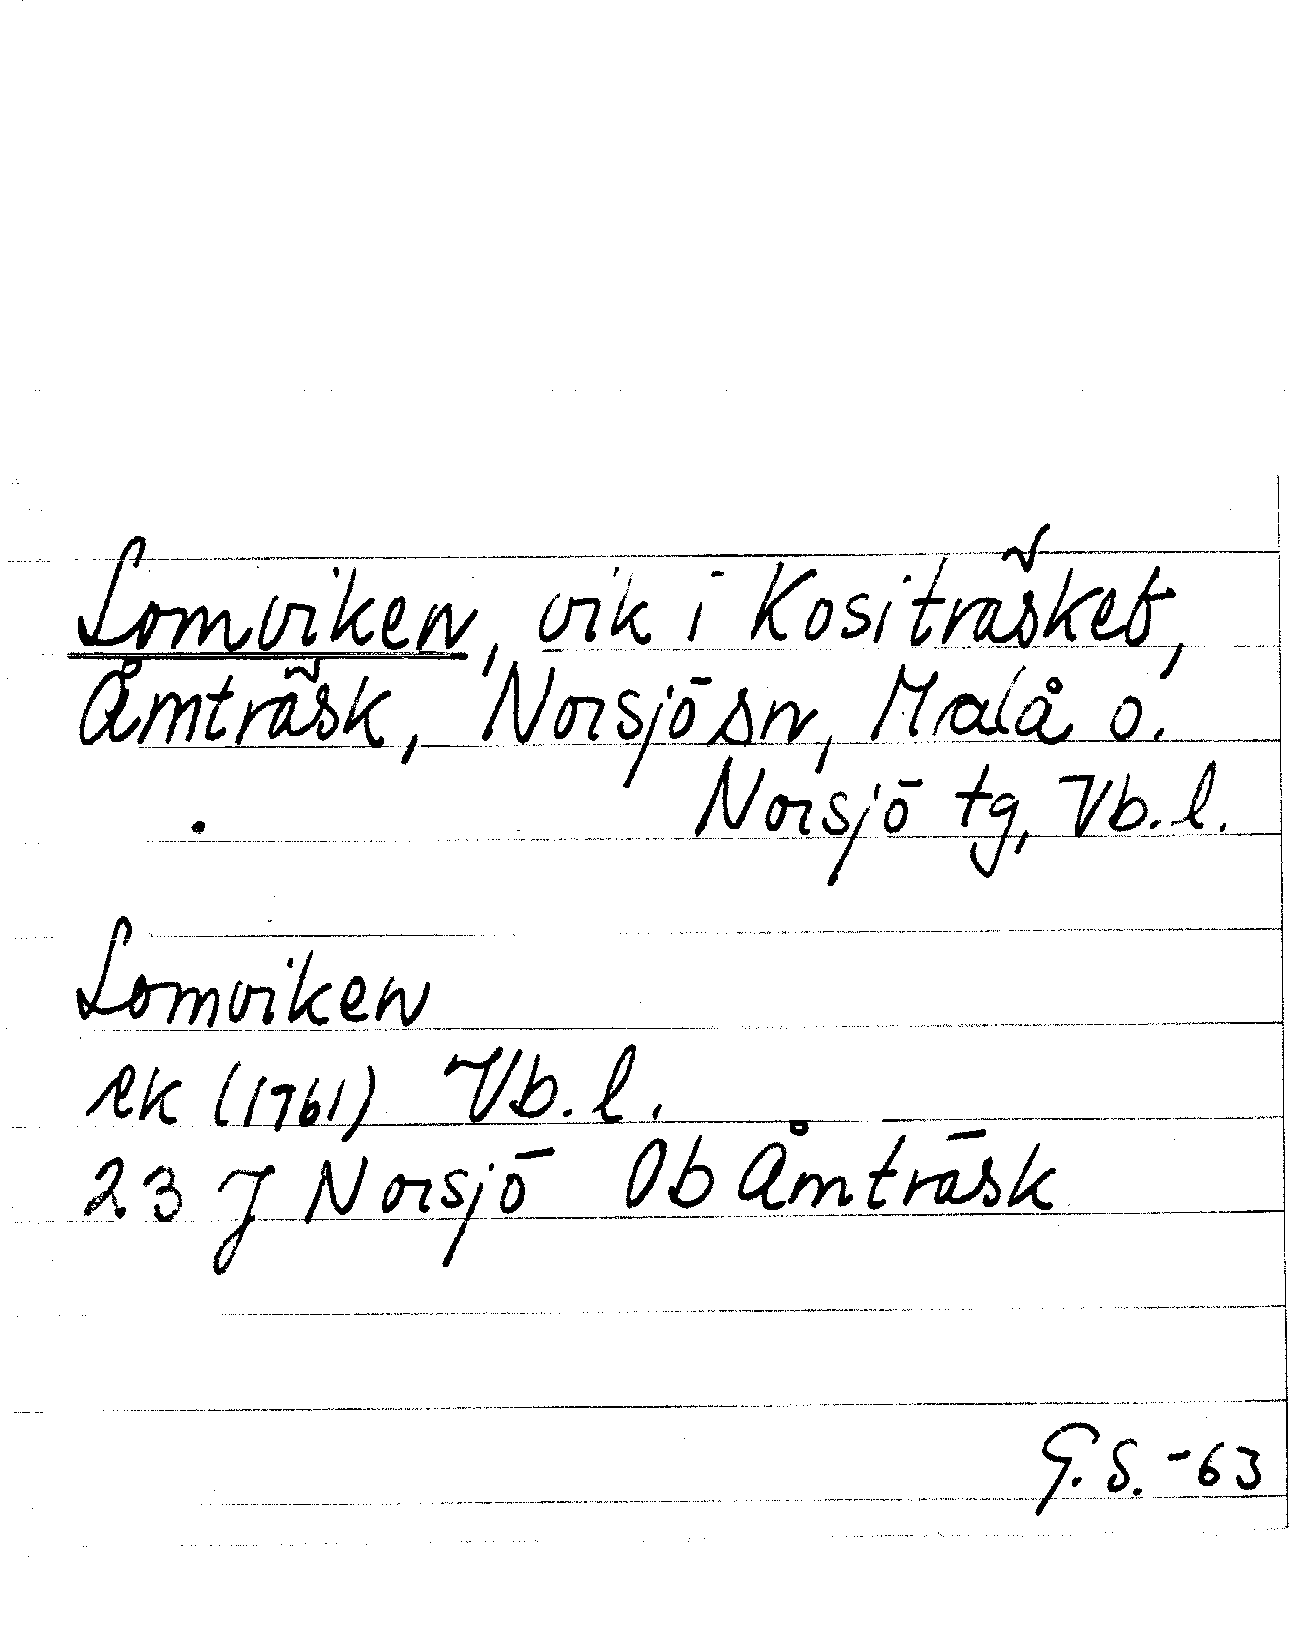 Lomviken, vik i Kositräsket,
Åmträsk, Norsjö sn, Malå o.
Norsjö tg, Vb. l.
Lomviken
ek (1961) Vb. l.
23 J Norsjö Ob Åmträsk
G. S. -63